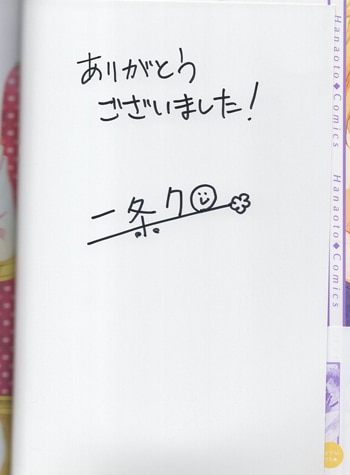 ありがとう
ございました!
一条クロ
Hanaoto◆Comics
Hanaoto◆Comics